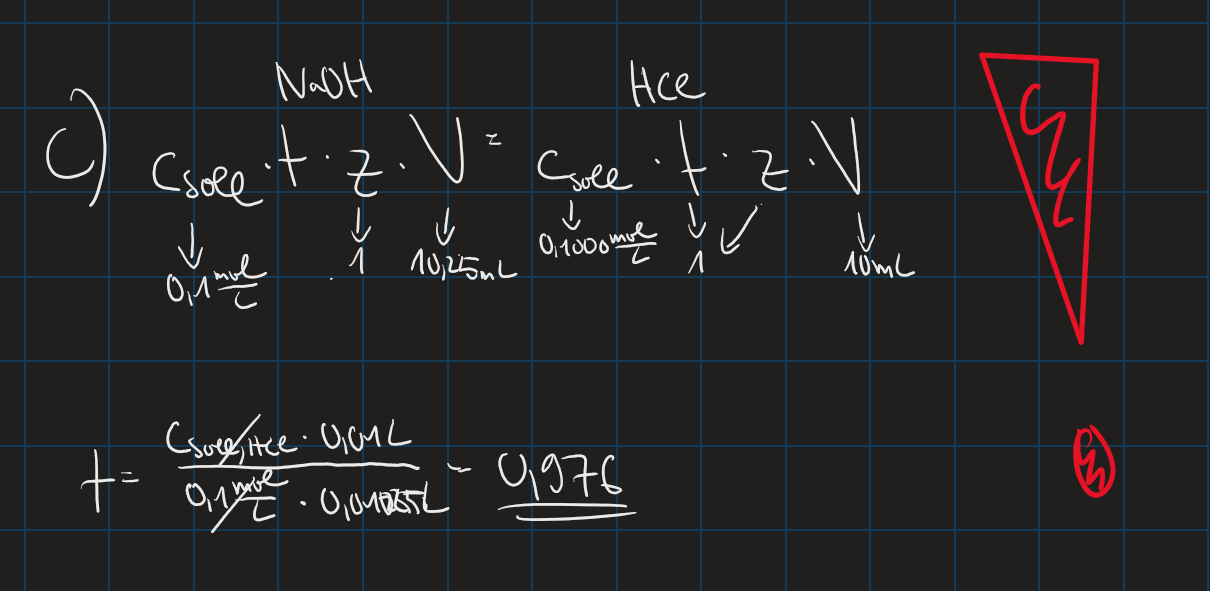 NaOH HCl
c) Csoll · t · z · V = Csoll · t · z · V
0,1 mol/L 1 10,25mL 0,1000 mol/L 1 10mL
t = Csoll,HCl · 0,01L / 0,1 mol/L · 0,01025L = 0,976